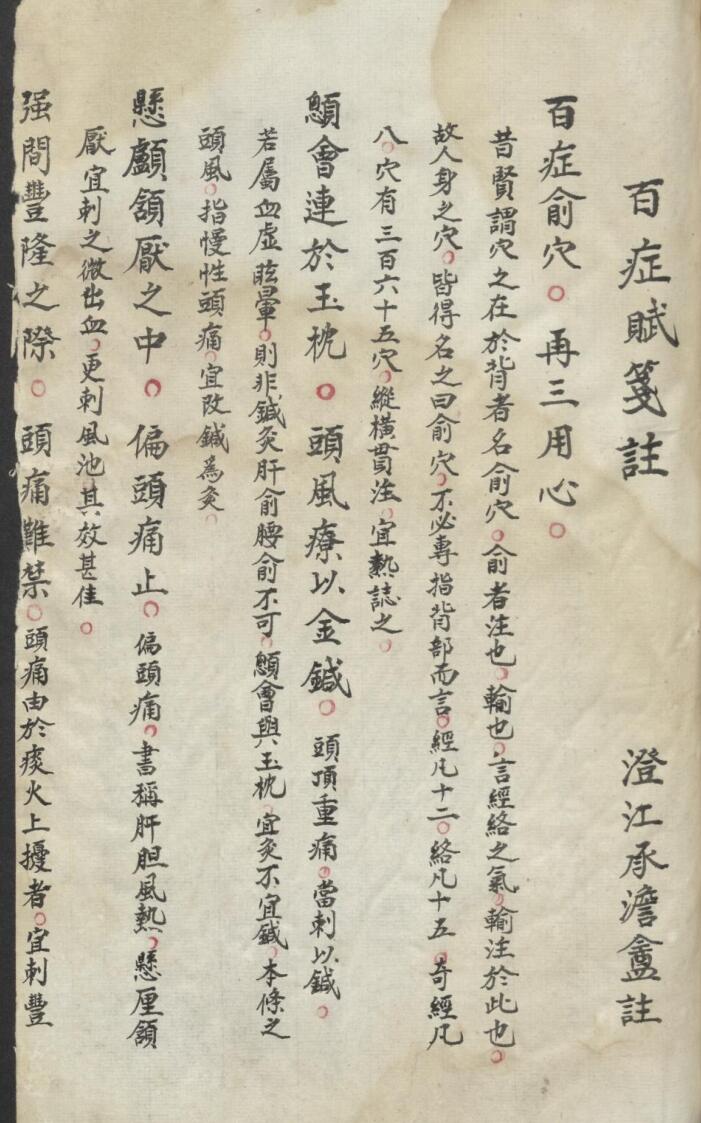 百症賦箋註　澄江承澹盦註
百症俞穴。再三用心。
昔賢謂穴之在於背者名俞穴。俞者注也。輸也。言經絡之氣。輸注於此也。
故人身之穴。皆得名之曰俞穴。不必專指背部而言。經凡十二。絡凡十五。奇經凡
八。穴有三百六十五穴。縱橫貫注。宜熟誌之。
顖會連於玉枕。頭風療以金鍼。頭頂重痛。當刺以鍼。
若屬血虛眩暈。則非鍼灸肝俞腰俞不可。顖會與玉枕。宜灸不宜鍼。本條之
頭風。指慢性頭痛。宜改鍼為灸。
懸顱頷厭之中。偏頭痛止。偏頭痛。書稱肝胆風熱。懸厘頷
厭宜刺之微出血。更刺風池。其效甚佳。
强間豐隆之際。頭痛難禁。頭痛由於痰火上擾者。宜刺豐